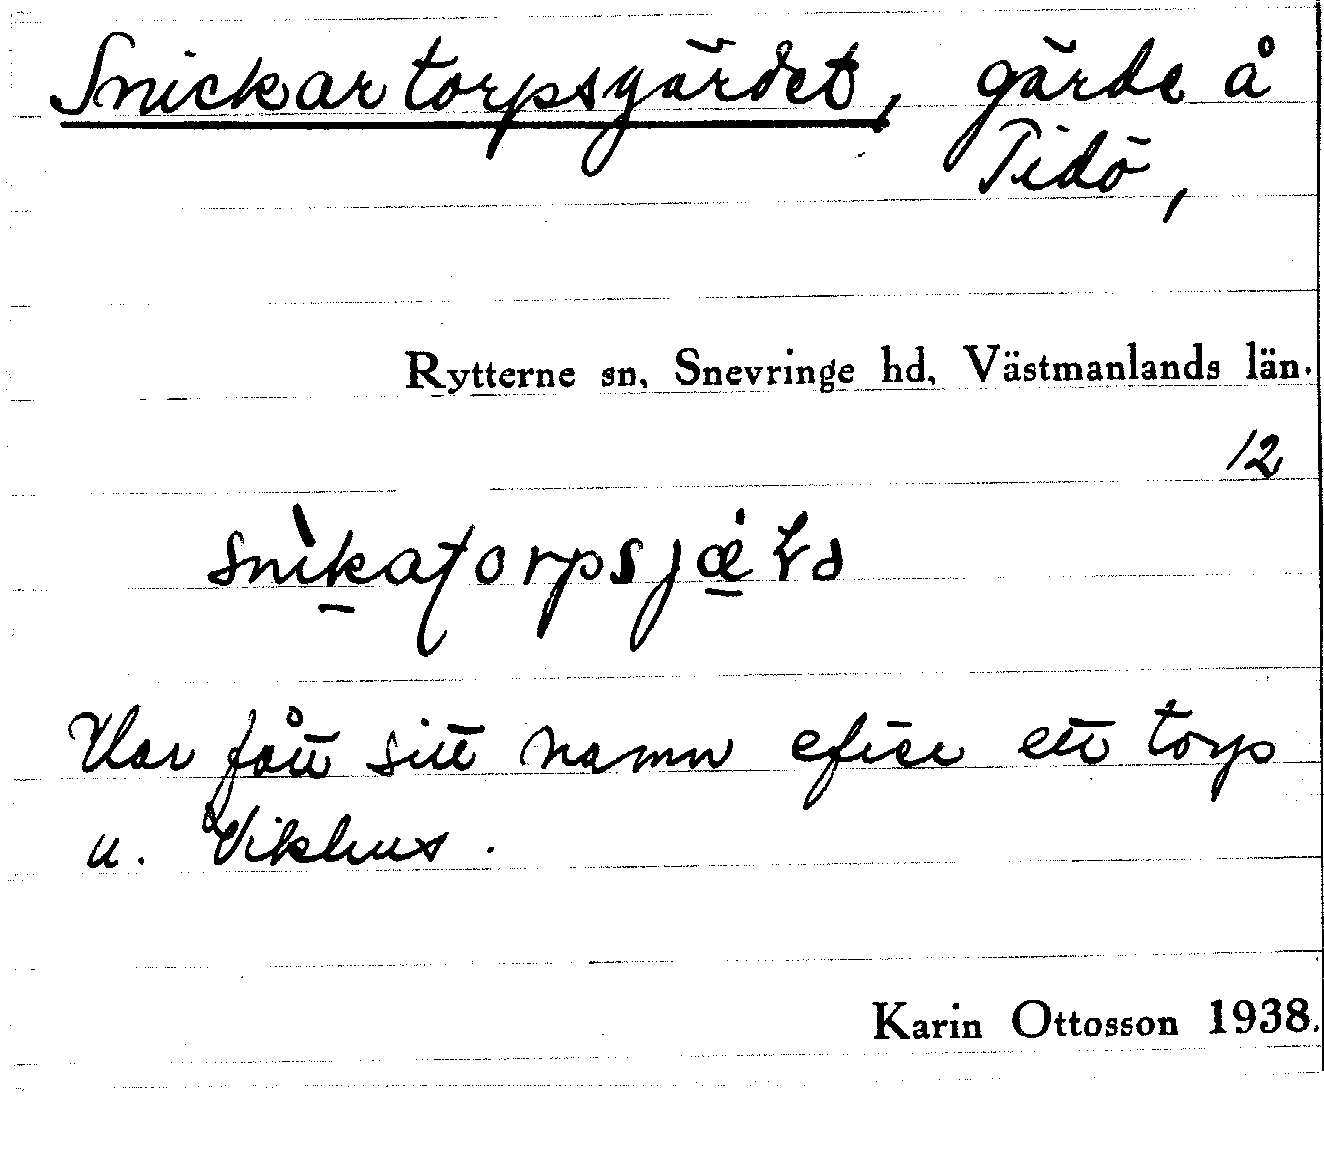 Snickartorpsgärdet, gärde å
Tidö,
Rytterne sn, Snevringe hd, Västmanlands län.
12
Har fått sitt namn efter ett torp
u. Vikhus.
Karin Ottosson 1938.